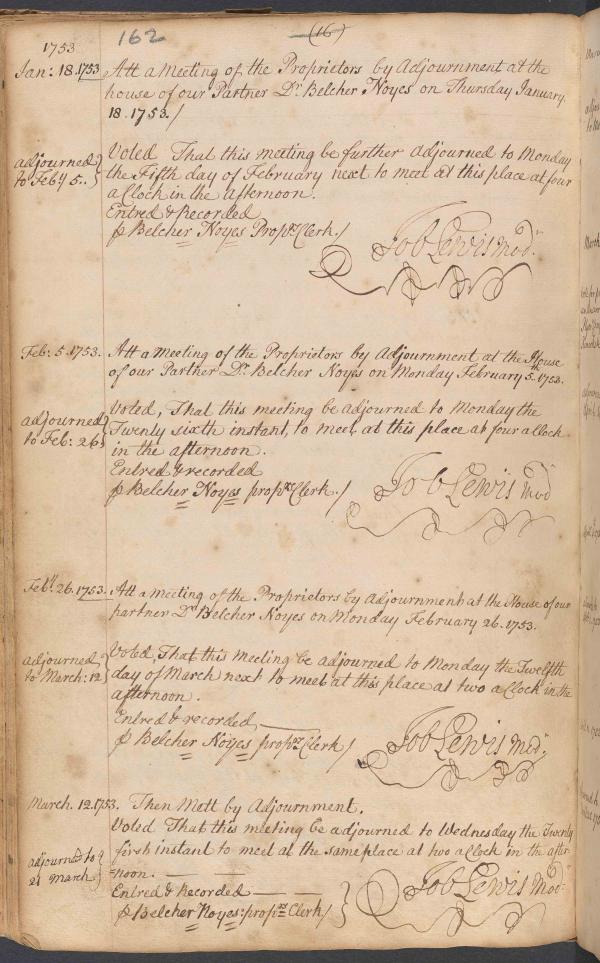 162
(16)
1753
Jan: 18. 1753
Att a Meeting of the Proprietors by Adjournment at the
house of our Partner Dr. Belcher Noyes on Thursday January
18. 1753./
adjourned
to Feby 5..
Voted That this meeting be further adjourned to Monday
the Fifth day of February next to meet at this place at four
a Clock in the Afternoon.
Entred & Recorded
p Belcher Noyes Propr. Clerk./
Job Lewis Modr.
Feb: 5. 1753.
Att a meeting of the Proprietors by Adjournment at the House
of our Partner Dr. Belcher Noyes on Monday February 5th. 1753.
adjourned
to Feb: 26
Voted, That this meeting be adjourned to Monday the
Twenty sixth instant, to meet at this place at four a Clock
in the afternoon.
Entred & recorded
p Belcher Noyes propr. Clerk./
Job Lewis Modr
Feby. 26. 1753.
Att a meeting of the Proprietors by Adjournment at the House of our
partner Dr. Belcher Noyes on Monday February 26. 1753.
adjourned
to March: 12
Voted, That this meeting be adjourned to Monday the Twelfth
day of March next to meet at this place at two a Clock in the
afternoon.
Entred & recorded
p Belcher Noyes propr. Clerk/
Job Lewis Modr.
March. 12. 1753.
Then Mett by Adjournment.
adjournd to
21 March
Voted That this meeting be adjourned to Wednesday the Twenty
first instant to meet at the same place at two a Clock in the after
-noon.
Entred & Recorded
p Belcher Noyes: propr. Clerk/
Job Lewis Modr.